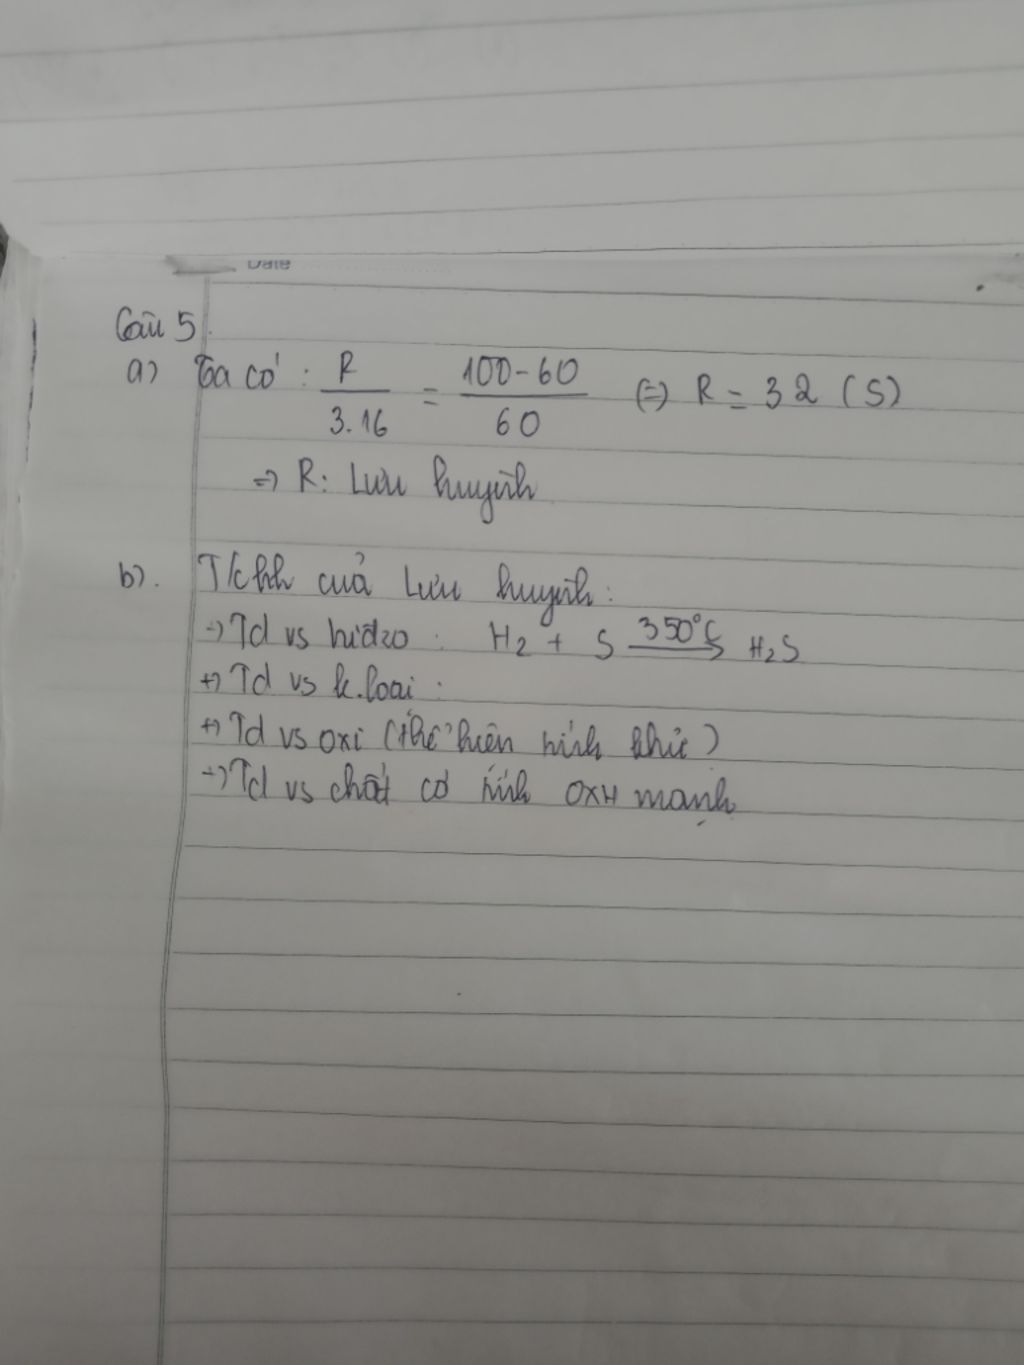 Date
Câu 5.
a) Ta có: R / 3.16 = 100-60 / 60 (=) R = 32 (S)
=> R: Lưu huỳnh
b). T/chh cuả Lưu huỳnh:
→ Td vs hidro: H₂ + S 350°C → H₂S
+) Td vs k.loai:
+) Td vs oxi (thể hiện tính khử)
→ Td vs chất có tính OXH mạnh